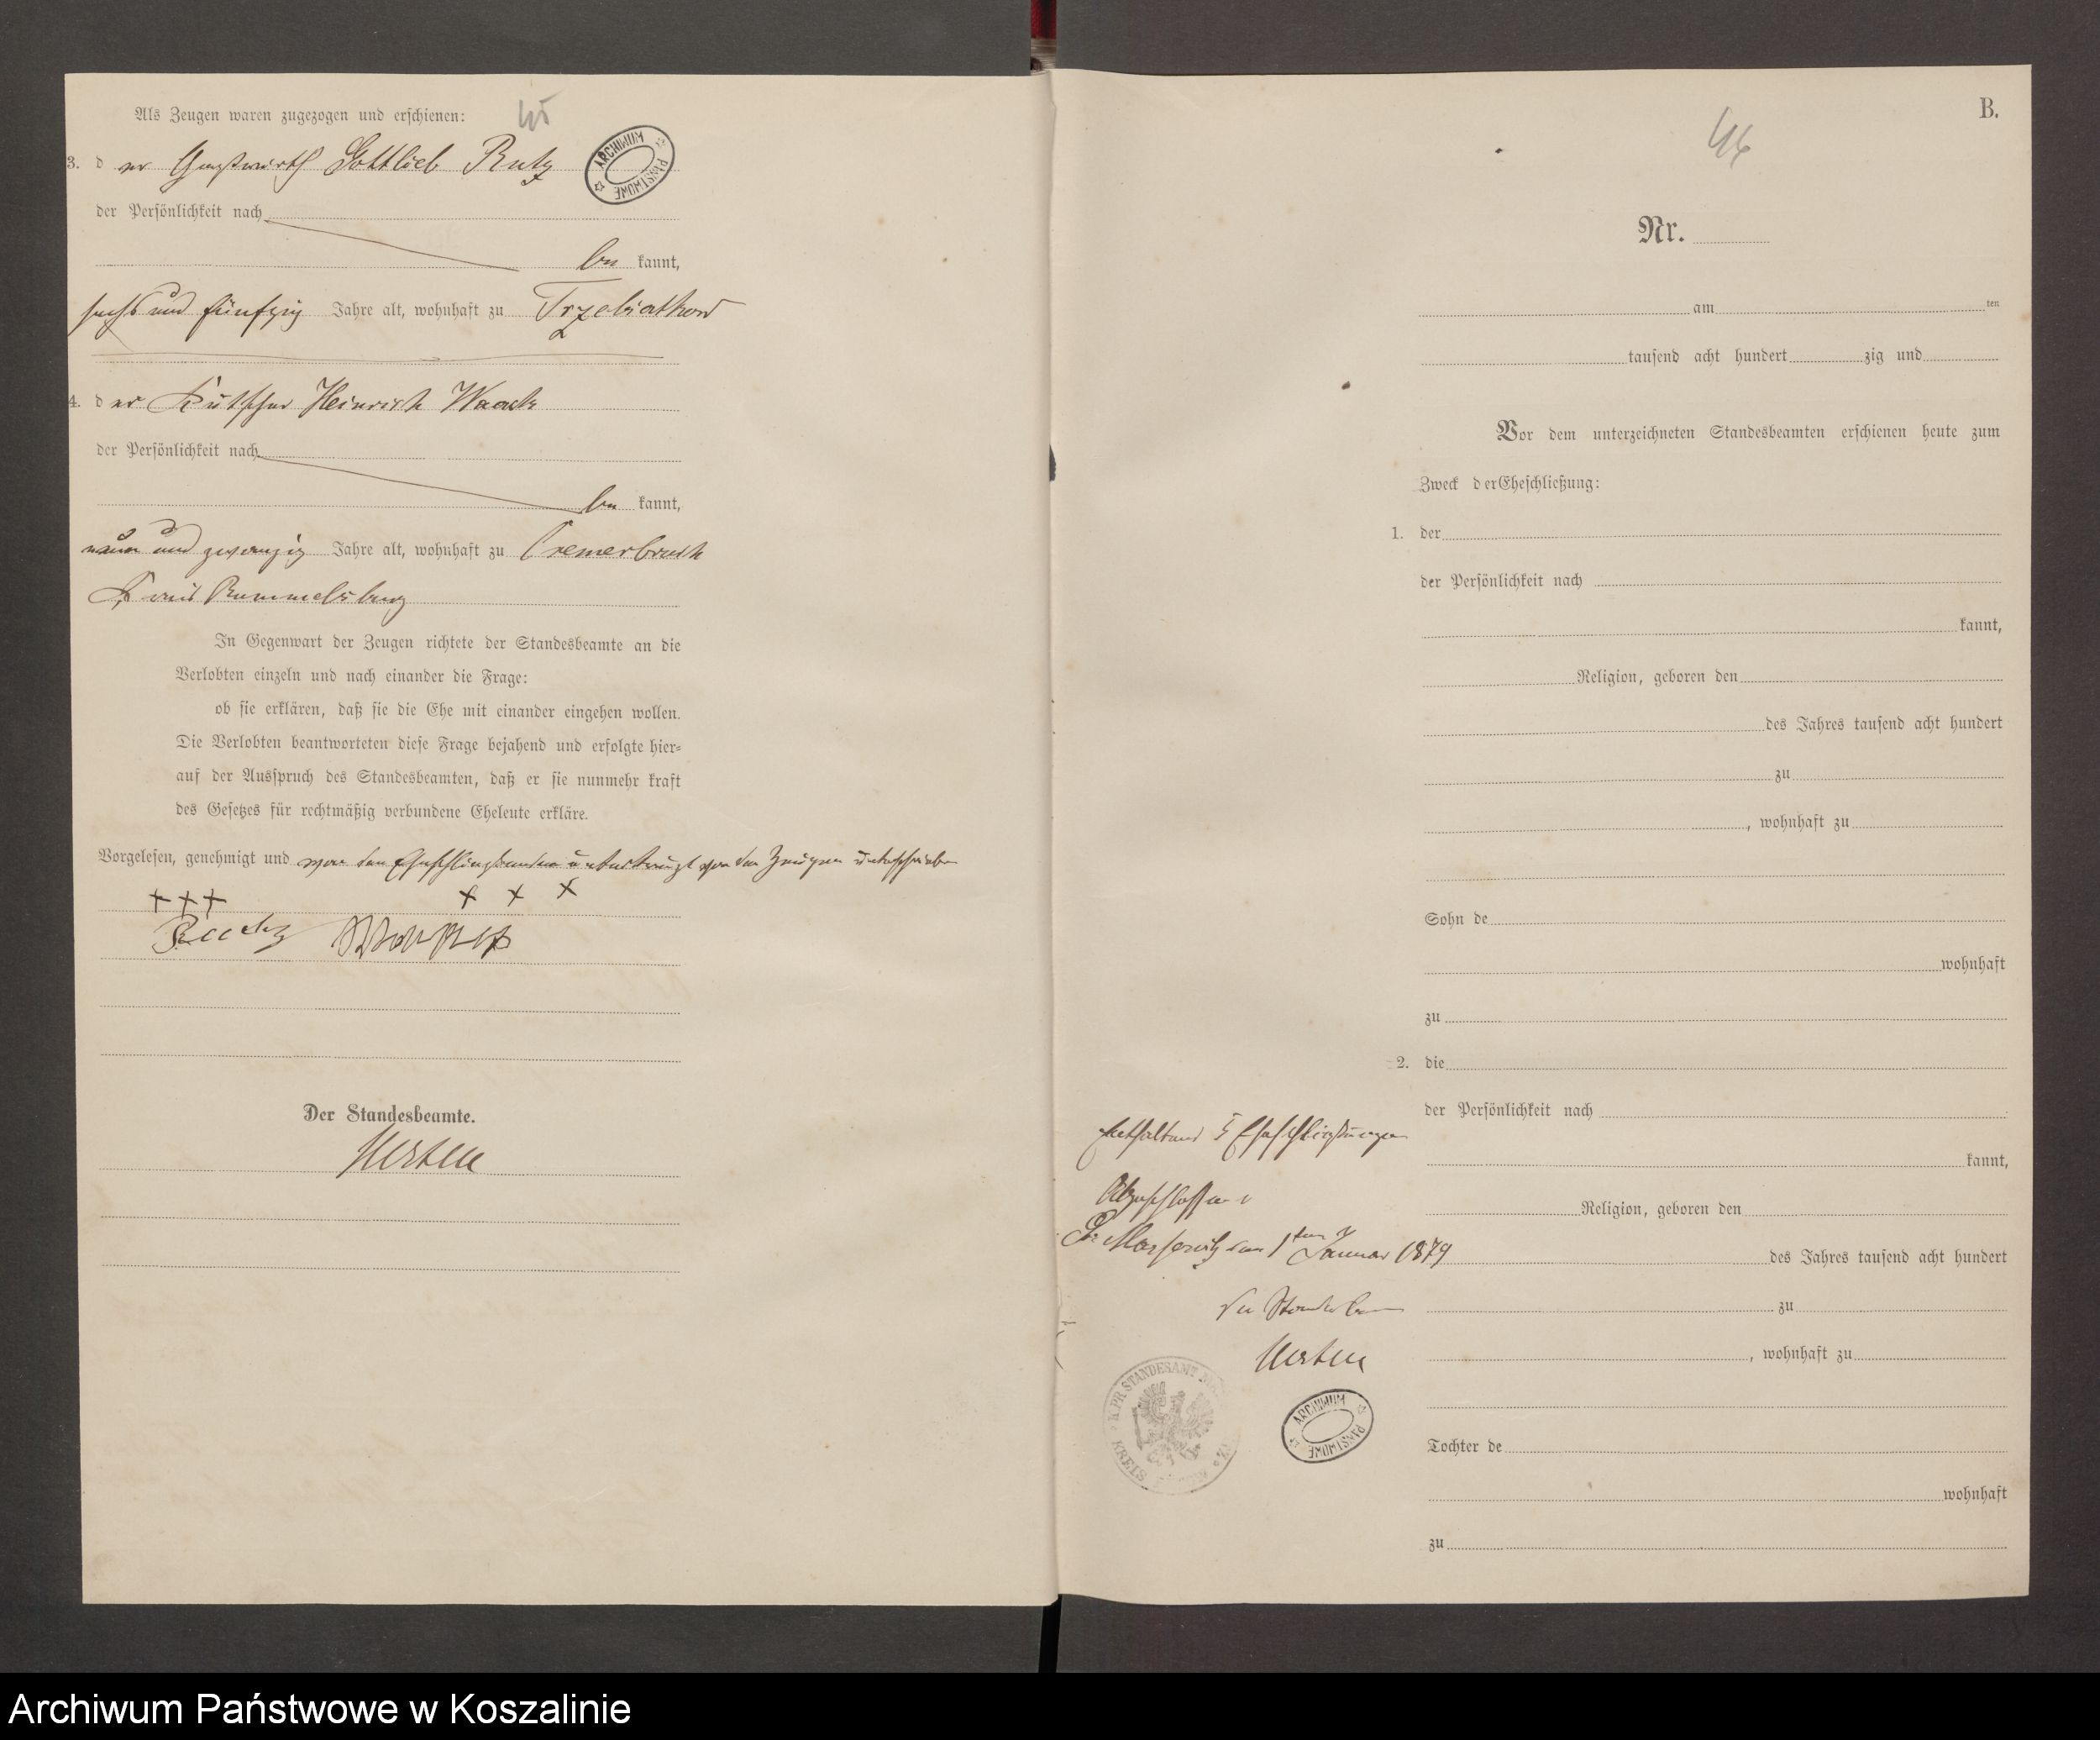 45
Als Zeugen waren zugezogen und erschienen:
3. der Gastwirth Gottlieb Rutz
ARCHIWUM PAŃSTWOWE
der Persönlichkeit nach
be kannt,
sechs und fünfzig Jahre alt, wohnhaft zu Trzebiatkow
4. der Kutscher Heinrich Waack
der Persönlichkeit nach
be kannt,
neun und zwanzig Jahre alt, wohnhaft zu Cremerbruch
Kreis Rummelsburg
In Gegenwart der Zeugen richtete der Standesbeamte an die
Verlobten einzeln und nach einander die Frage:
ob sie erklären, daß sie die Ehe mit einander eingehen wollen.
Die Verlobten beantworteten diese Frage bejahend und erfolgte hier=
auf der Ausspruch des Standesbeamten, daß er sie nunmehr kraft
des Gesetzes für rechtmäßig verbundene Eheleute erkläre.
Vorgelesen, genehmigt und von den Eheschließenden unterkreuzt von den Zeugen unterschrieben
+++ + + +
Der Standesbeamte.
B.
46
Nr.
am ten
tausend acht hundert zig und
Vor dem unterzeichneten Standesbeamten erschienen heute zum
Zweck der Eheschließung:
1. der
der Persönlichkeit nach
kannt,
Religion, geboren den
des Jahres tausend acht hundert
zu
, wohnhaft zu
Sohn de
wohnhaft
zu
2. die
der Persönlichkeit nach
kannt,
Religion, geboren den
des Jahres tausend acht hundert
zu
, wohnhaft zu
Tochter de
wohnhaft
zu
Enthaltend 5 Eheschließungen
Abgeschlossen
den 1ten Januar 1879
Der Standesbeamte
K. PR. STANDESAMT
KREIS
ARCHIWUM PAŃSTWOWE
Archiwum Państwowe w Koszalinie